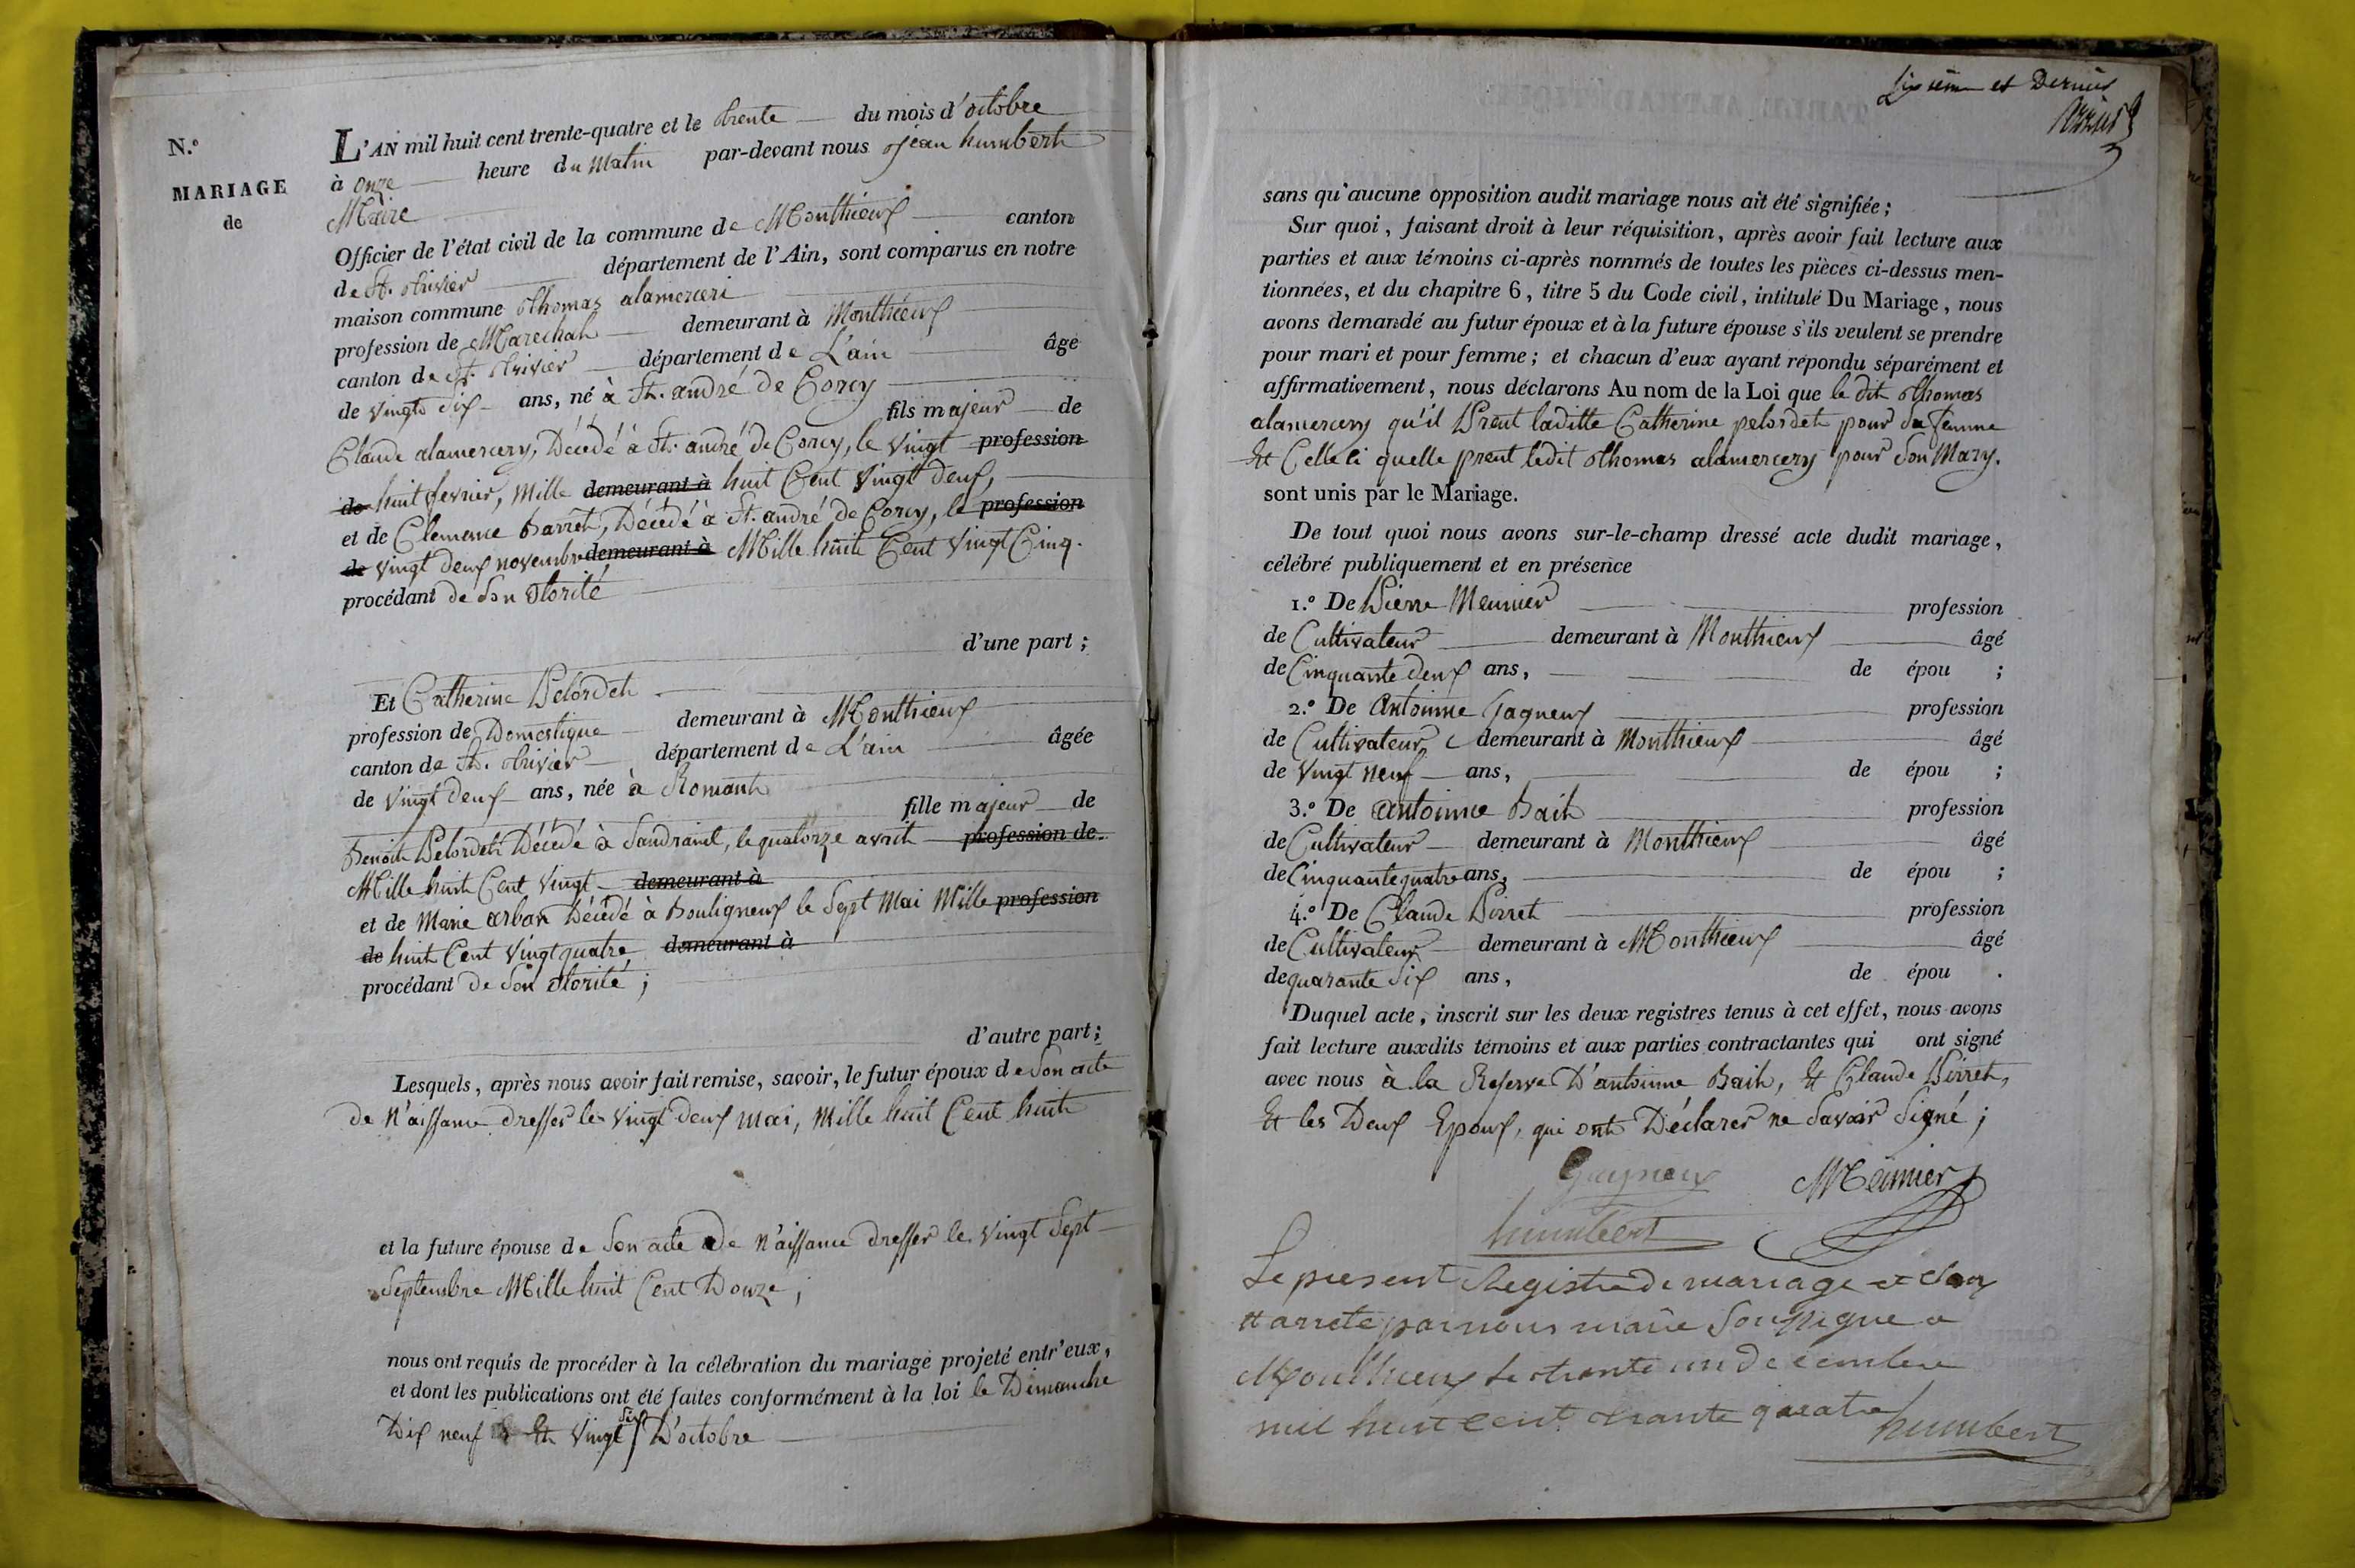 N.º
MARIAGE
de
L'AN mil huit cent trente-quatre et le trente du mois d'octobre
à onze heure du Matin par-devant nous jean humbert
Maire
Officier de l'état civil de la commune de Monthieux canton
de St. trivier département de l'Ain, sont comparus en notre
maison commune thomas alamerceri
profession de Marechal demeurant à Monthieux
canton de St. trivier département de L'ain âgé
de vingt six ans, né à St. andré de Corcy
fils majeur de
Claude alamercery, Décédé à St. andré de Corcy, le vingt profession
de huit fevrier, Mille demeurant à huit Cent vingt deux,
et de Clemence barret, Décédé à St. andré de Corcy, le profession
de vingt deux novembre demeurant à Mille huit Cent vingt Cinq.
procédant de son otorité
d'une part ;
Et Catherine Pelordet
profession de Domestique demeurant à Monthieux
canton de St. trivier département de L'ain âgée
de vingt deux ans, née à Romant
fille majeur de
benoit Pelordet Décédé à Sandranet, le quatorze avrit profession de
Mille huit Cent vingt demeurant à
et de Marie arban Décédé à bouligneux le Sept Mai Mille profession
de huit Cent vingt quatre demeurant à
procédant de son otorité ;
d'autre part ;
Lesquels, après nous avoir fait remise, savoir, le futur époux de son acte
de N'aissance dresser le vingt deux mai, Mille huit Cent huit
et la future épouse de son acte de N'aissance dresser le vingt Sept
Septembre Mille huit Cent Douze ;
nous ont requis de procéder à la célébration du mariage projeté entr'eux,
et dont les publications ont été faites conformément à la loi le Dimanche
Dix neuf Et vingt six D'octobre
Sixième et Dernier
sans qu'aucune opposition audit mariage nous ait été signifiée ;
Sur quoi, faisant droit à leur réquisition, après avoir fait lecture aux
parties et aux témoins ci-après nommés de toutes les pièces ci-dessus men-
tionnées, et du chapitre 6, titre 5 du Code civil, intitulé Du Mariage, nous
avons demandé au futur époux et à la future épouse s'ils veulent se prendre
pour mari et pour femme ; et chacun d'eux ayant répondu séparément et
affirmativement, nous déclarons Au nom de la Loi que le dit thomas
alamercery qu'il Prent laditte Catherine pelordet pour Sa femme
Et Celle ci quelle prent ledit thomas alamercery pour Son Mary.
sont unis par le Mariage.
De tout quoi nous avons sur-le-champ dressé acte dudit mariage,
célébré publiquement et en présence
1.º De Pierre Meunier profession
de Cultivateur demeurant à Monthieux âgé
de Cinquante deux ans, de épou ;
2.º De Antoinne Gagneux profession
de Cultivateur demeurant à Monthieux âgé
de vingt neuf ans, de épou ;
3.º De antoinne bait profession
de Cultivateur demeurant à Monthieux âgé
de Cinquante quatre ans, de épou ;
4.º De Claude Pirret profession
de Cultivateur demeurant à Monthieux âgé
de quarante Six ans, de épou .
Duquel acte, inscrit sur les deux registres tenus à cet effet, nous avons
fait lecture auxdits témoins et aux parties contractantes qui ont signé
avec nous à la Reserve D'antoinne Bait, Et Claude Pirret,
Et les Deux Epoux, qui ont Déclarer ne Savoir Signé ;
Gagneux Meûnier
humbert
Le present Registre de mariage et clos
et arrete par nous maire Soussigne a
Monthieux le trente un decembre
mil huit cent trante quatre humbert